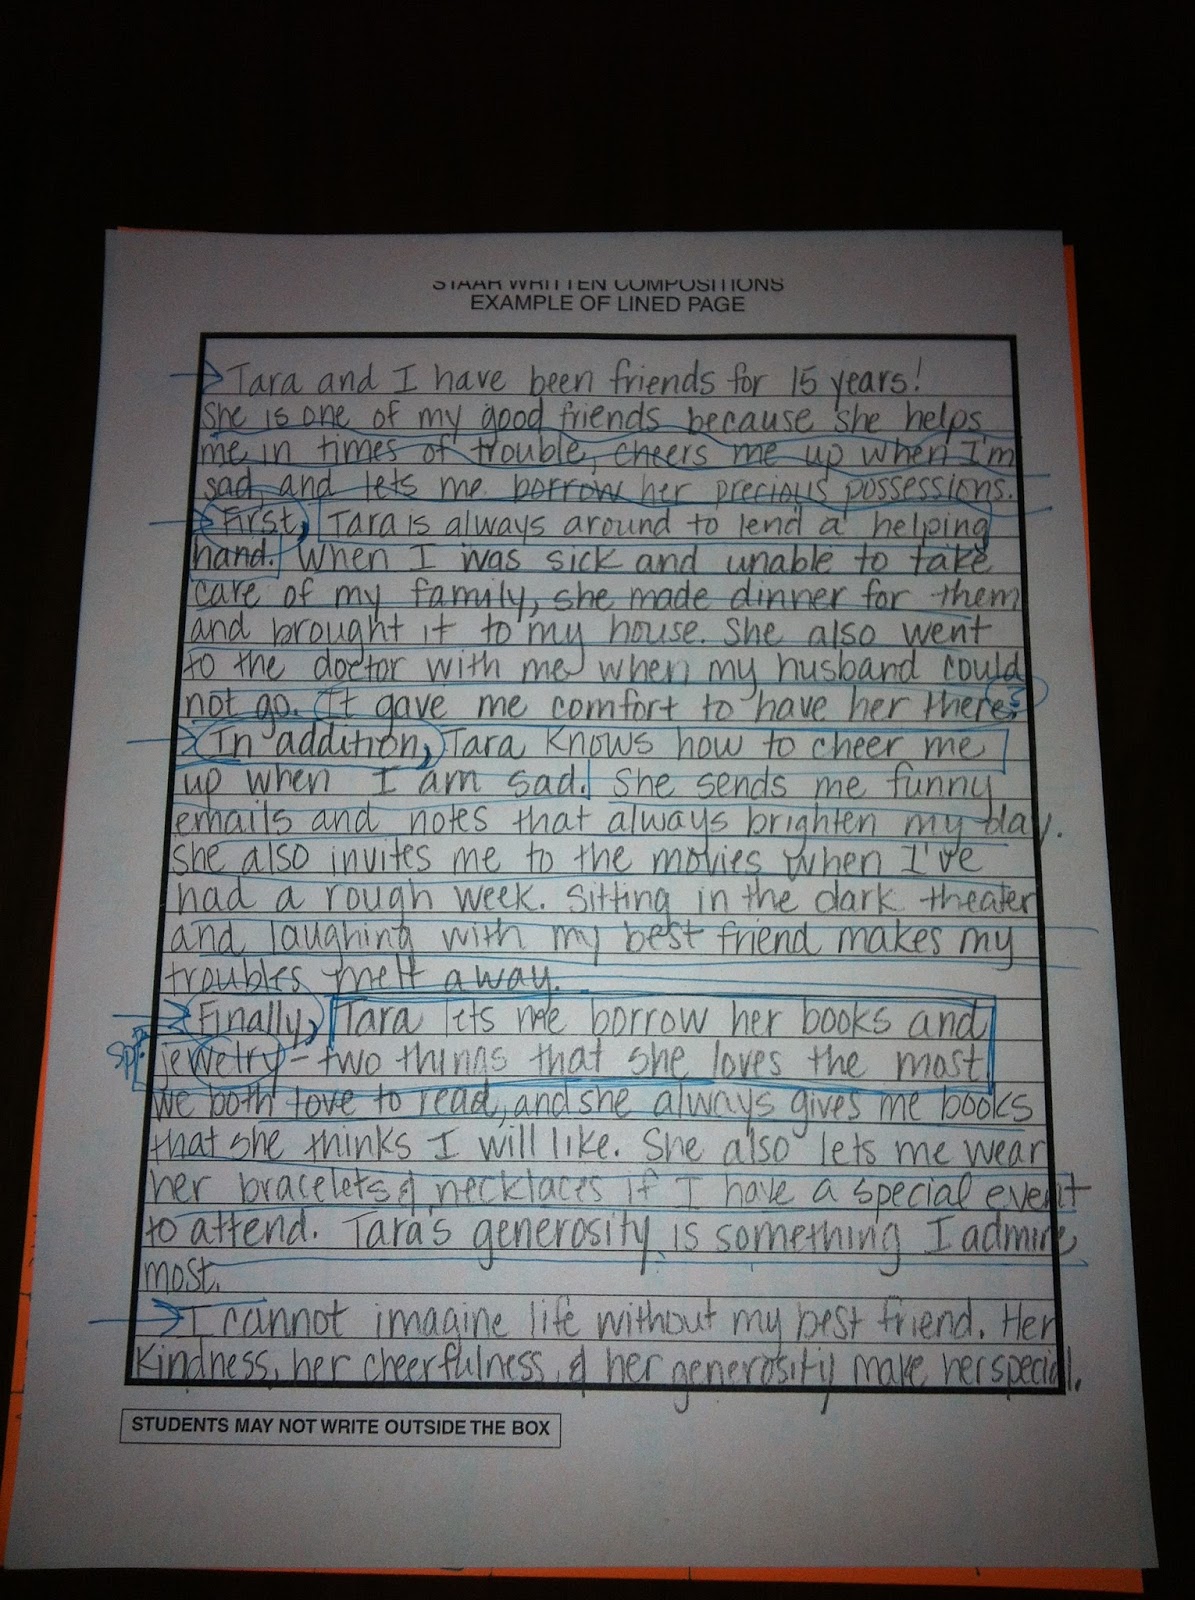 STAAR WRITTEN COMPOSITIONS
EXAMPLE OF LINED PAGE
Tara and I have been friends for 15 years!
She is one of my good friends because she helps
me in times of trouble, cheers me up when I'm
sad, and lets me borrow her precious possessions.
First, Tara is always around to lend a helping
hand. When I was sick and unable to take
care of my family, she made dinner for them
and brought it to my house. She also went
to the doctor with me when my husband could
not go. It gave me comfort to have her there.
In addition, Tara knows how to cheer me
up when I am sad. She sends me funny
emails and notes that always brighten my day.
She also invites me to the movies when I've
had a rough week. Sitting in the dark theater
and laughing with my best friend makes my
troubles melt away.
Finally, Tara lets me borrow her books and
sp? jewelry - two things that she loves the most
We both love to read, and she always gives me books
that she thinks I will like. She also lets me wear
her bracelets & necklaces if I have a special event
to attend. Tara's generosity is something I admire
most.
I cannot imagine life without my best friend. Her
kindness, her cheerfulness, & her generosity make her special.
STUDENTS MAY NOT WRITE OUTSIDE THE BOX